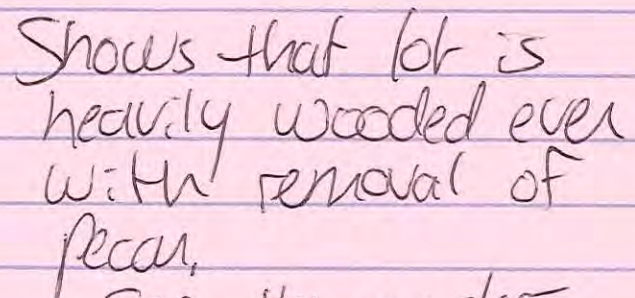 Shows that lot is
heavily wooded even
with removal of
pecan.